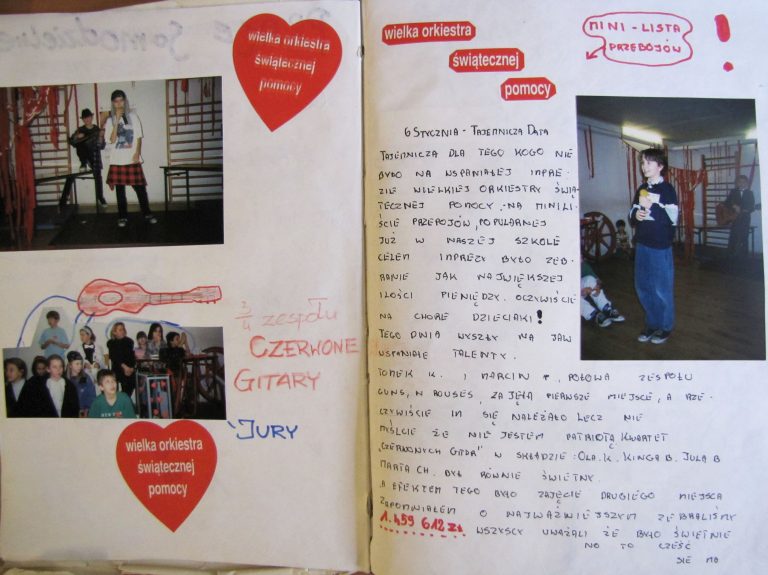 wielka orkiestra
świątecznej
pomocy
3/4 zespołu
CZERWONE
GITARY
JURY
wielka orkiestra
świątecznej
pomocy
wielka orkiestra
świątecznej
pomocy
MINI - LISTA
PRZEBOJÓW
!
6 STYCZNIA - TAJEMNICZA DATA
TAJEMNICZA DLA TEGO KOGO NIE
BYŁO NA WSPANIAŁEJ IMPRE-
ZIE WIELKIEJ ORKIESTRY ŚWIĄ-
TECZNEJ POMOCY, -NA MINILI-
ŚCIE PRZEPOJÓW, POPULARNEJ
JUŻ W NASZEJ SZKOLE
CELEM IMPREZY BYŁO ZEB-
RANIE JAK NAJWIĘKSZEJ
ILOŚCI PIENIĘDZY. OCZYWIŚCIE
NA CHORE DZIECIAKI!
TEGO DNIA WYSZŁY NA JAW
WSPANIAŁE TALENTY.
TOMEK K. I MARCIN P., POŁOWA ZESPOŁU
GUNS, N ROUSES, ZAJĘŁA PIERWSZE MIEJSCE, A RZE-
CZYWIŚCIE IM SIĘ NALEŻAŁO LECZ NIE
MYŚLCIE ŻE NIE JESTEM PATRIOTĄ. KWARTET
„CZERWONYCH GITAR" W SKŁADZIE: OLA. K. KINGA B. JULA B
MARTA CH. BYŁ RÓWNIE ŚWIETNY.
A EFEKTEM TEGO BYŁO ZAJĘCIE DRUGIEGO MIEJSCA
ZAPOMNIAŁEM O NAJWAŻNIEJSZYM ZEBRALIŚMY
1.459 612 ZŁ WSZYSCY UWAŻALI ŻE BYŁO ŚWIETNIE
NO TO CZEŚĆ
SIE MA